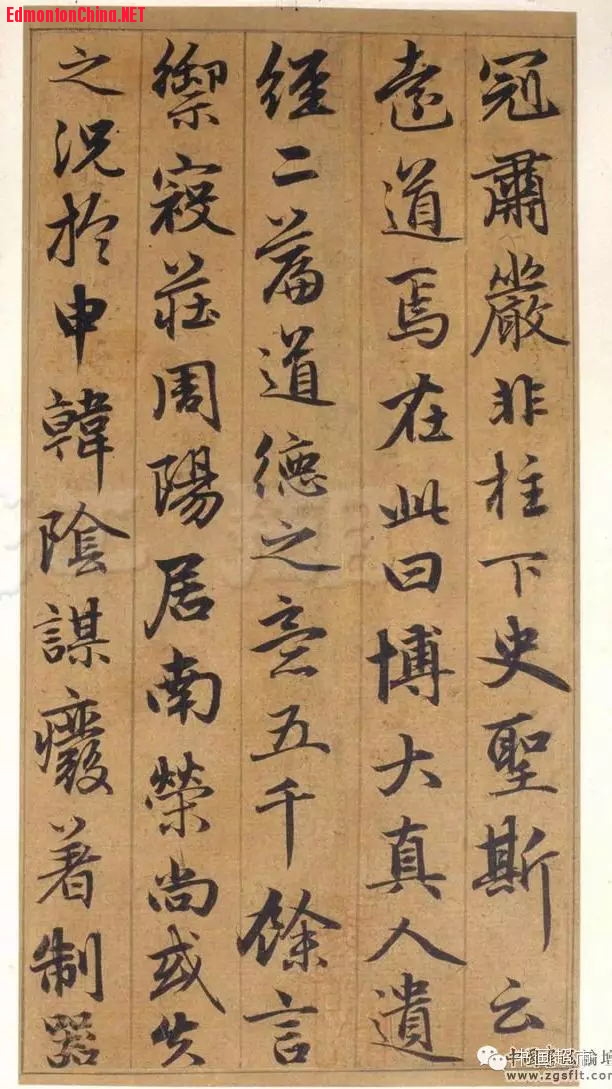 EdmontonChina.NET
冠肅嚴非柱下史聖斯云
遠道焉在此曰博大真人遺
經二篇道德之意五千餘言
禦寇莊周陽居南榮尚或失
之況於申韓陰謀癈著制器
www.zgsflt.com